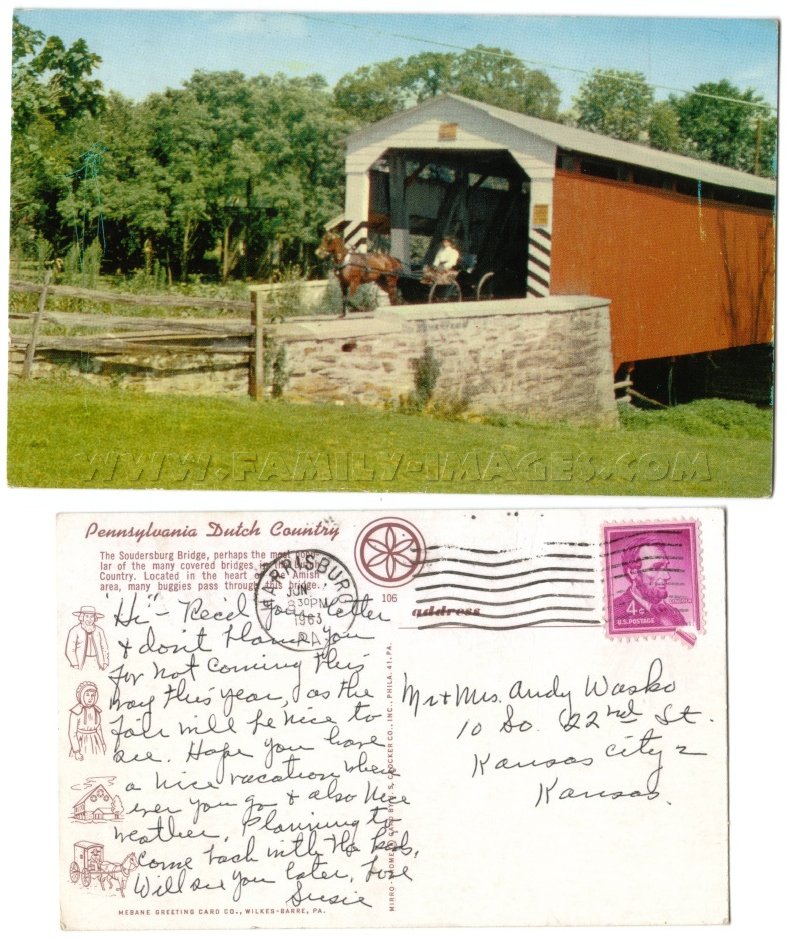 WWW.FAMILY-IMAGES.COM
Pennsylvania Dutch Country
The Soudersburg Bridge, perhaps the most popu-
lar of the many covered bridges in the Dutch
Country. Located in the heart of the Amish
area, many buggies pass through this bridge.
106
HARRISBURG
JUN
8 30 PM
1963
PA.
address
4¢
U.S. POSTAGE
LINCOLN
Hi - Rec'd your letter
& don't blame you
for not coming this
way this year, as the
fair will be nice to
see. Hope you have
a nice vacation where
ever you go & also nice
weather. Planning to
come back with the kids,
Will see you later, Love
Susie
Mr & Mrs. Andy Wasko
10 So. 22nd St.
Kansas City 2
Kansas.
MIRRO-KROME CARD BY H. S. CROCKER CO., INC., PHILA. 41, PA.
MEBANE GREETING CARD CO., WILKES-BARRE, PA.